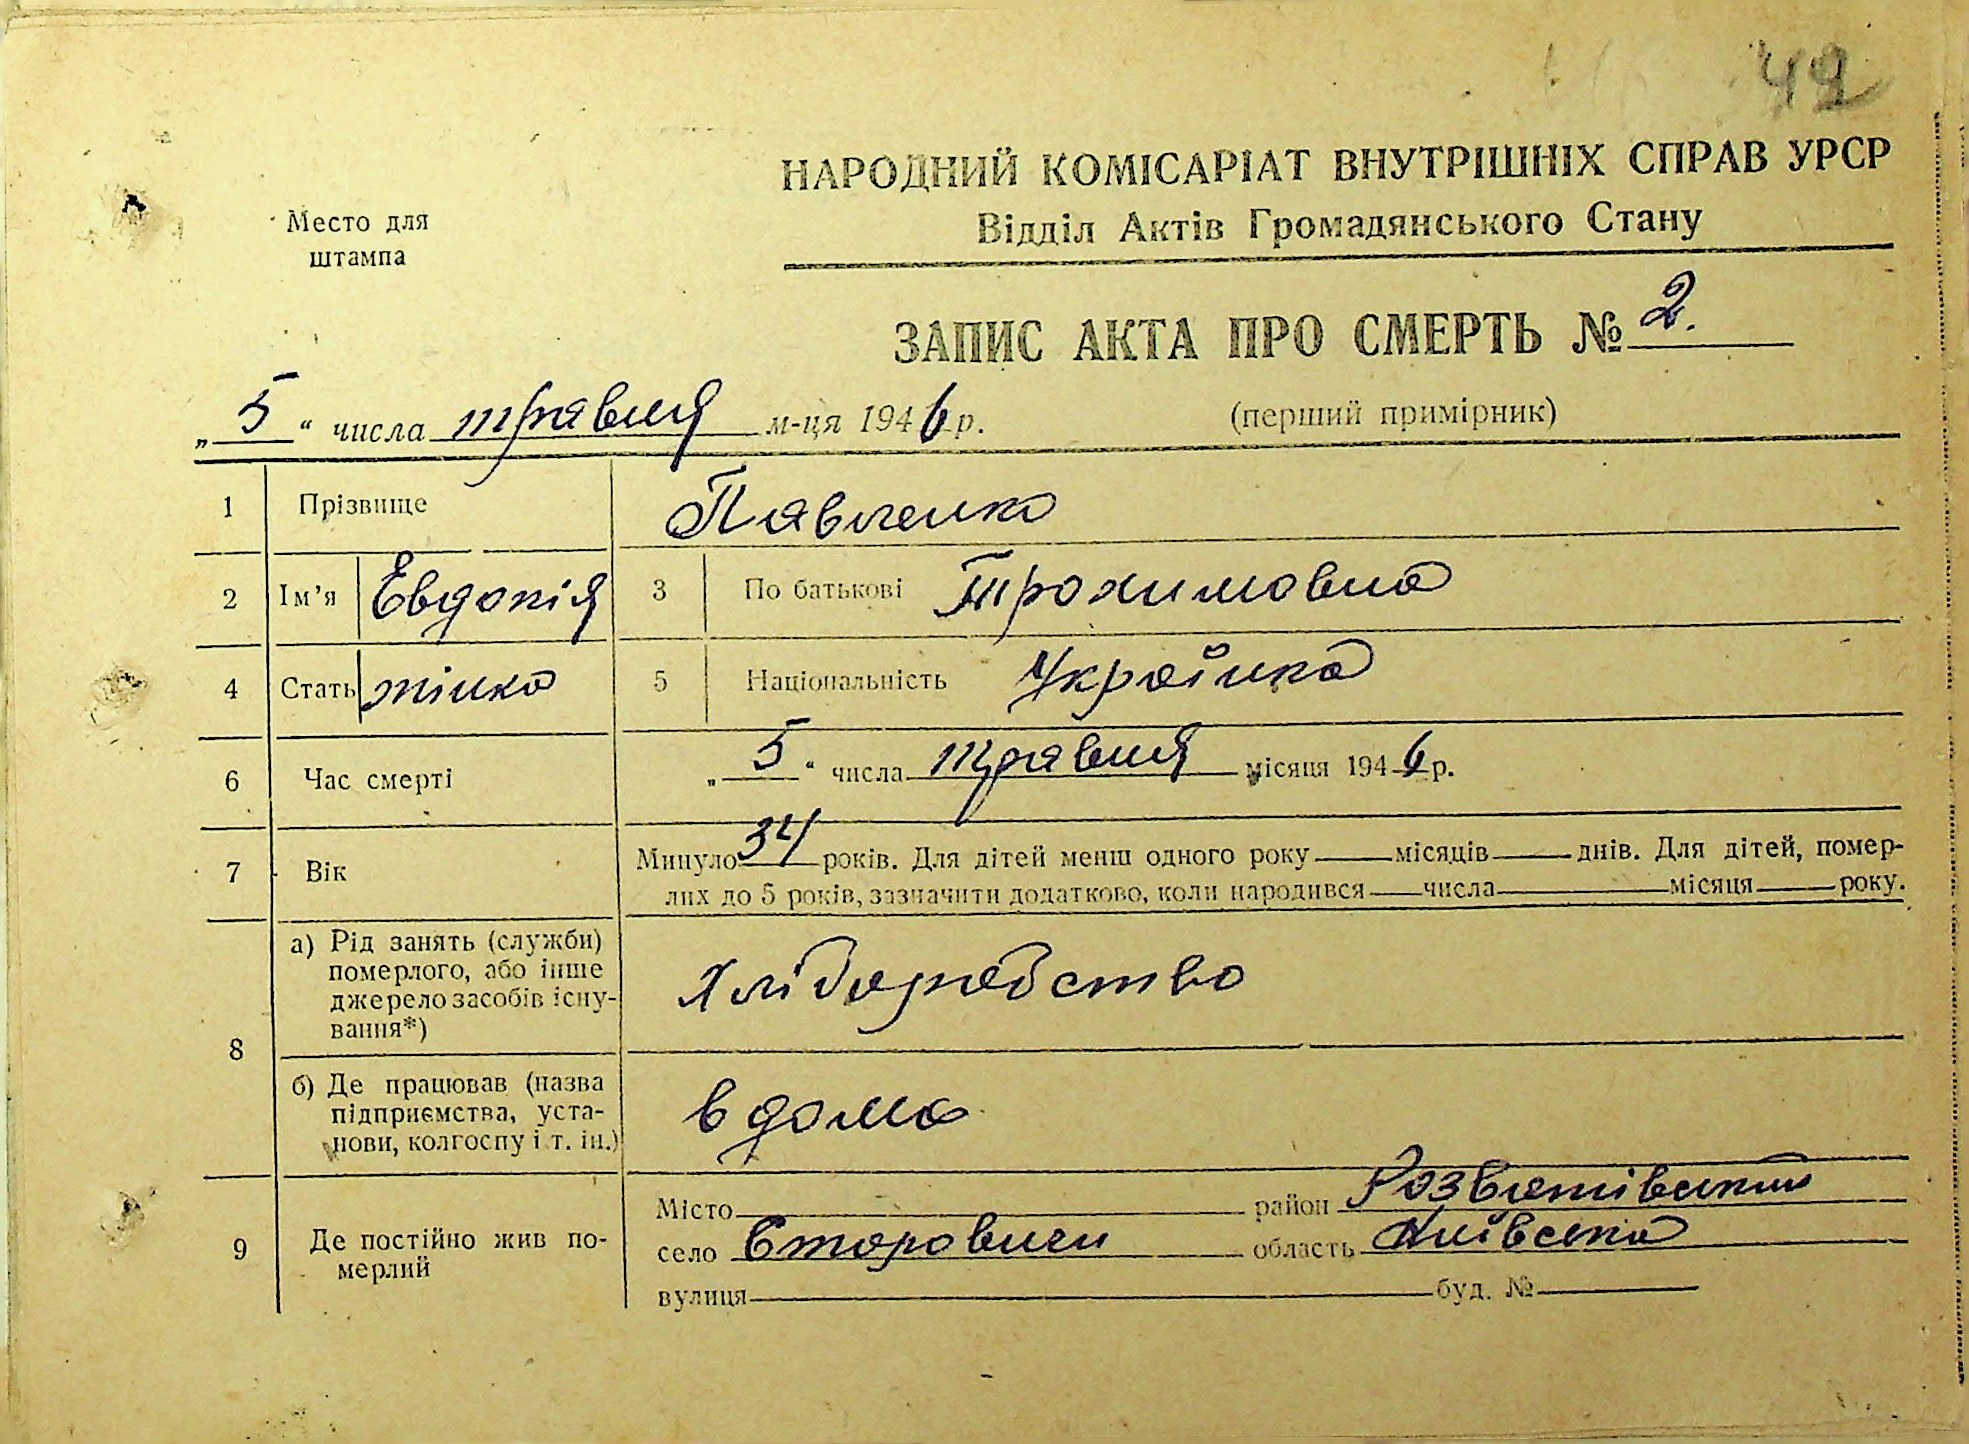 42
НАРОДНИЙ КОМІСАРІАТ ВНУТРІШНІХ СПРАВ УРСР
Відділ Актів Громадянського Стану
Место для
штампа
ЗАПИС АКТА ПРО СМЕРТЬ № 2.
„ 5 “ числа травня м-ця 1946 р.
(перший примірник)
1 Прізвище Павленко
2 Ім’я Евдокія 3 По батькові Трохимовна
4 Стать жінка 5 Національність Українка
6 Час смерті „ 5 “ числа травня місяця 1946 р.
7 Вік Минуло 34 років. Для дітей менш одного року — місяців — днів. Для дітей, помер-
лих до 5 років, зазначити додатково, коли народився — числа — місяця — року.
8 а) Рід занять (служби)
померлого, або інше
джерело засобів існу-
вання*)
хліборобство
б) Де працював (назва
підприємства, уста-
нови, колгоспу і т. ін.)
в дома
9 Де постійно жив по-
мерлий
Місто — район Розважівський
село Сторовичи область Київська
вулиця — буд. № —